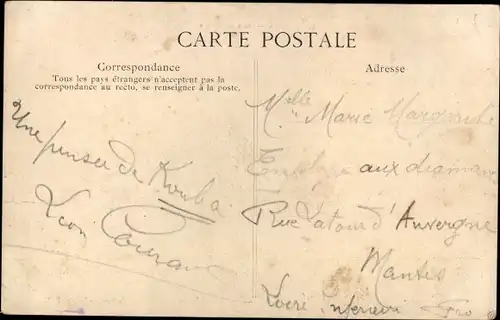 CARTE POSTALE
Correspondance
Tous les pays étrangers n'acceptent pas la
correspondance au recto, se renseigner à la poste.
Adresse
Une pensée de Kouba
Léon
Melle Marie
aux
Rue Latour d'Auvergne
Nantes
Loire Inférieure